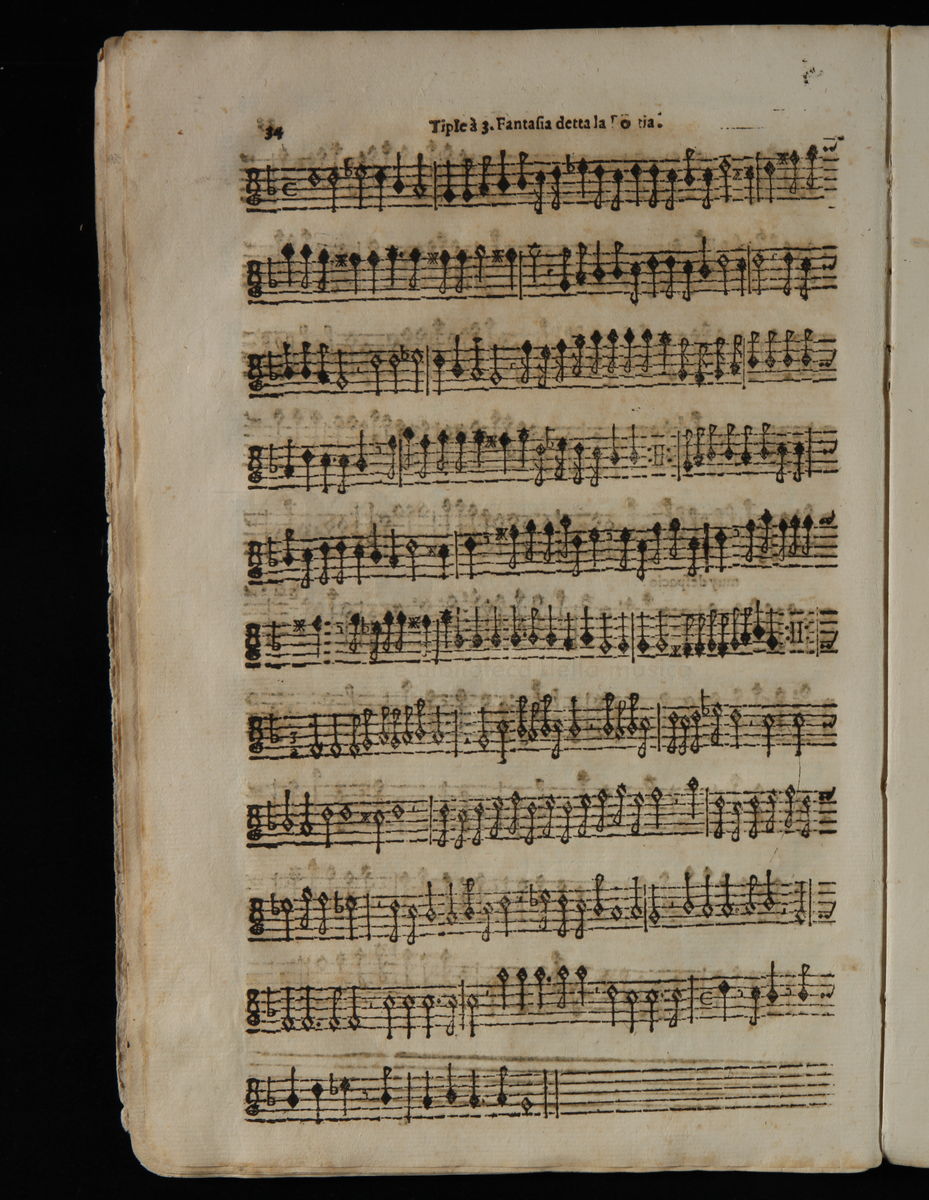 34
Tiple à 3. Fantasia detta la